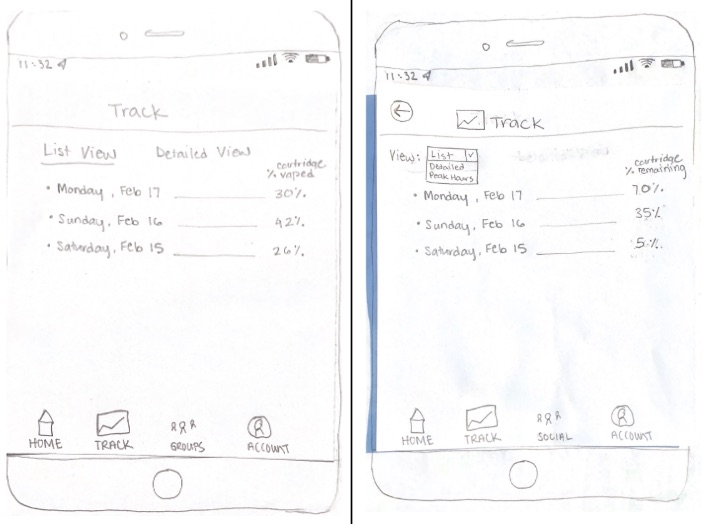 11:32
Track
List View Detailed View
cartridge
% vaped
• Monday, Feb 17 30%
• Sunday, Feb 16 42%
• Saturday, Feb 15 26%
HOME TRACK GROUPS ACCOUNT
11:32
Track
View: List
Detailed
Peak Hours
cartridge
% remaining
• Monday, Feb 17 70%
• Sunday, Feb 16 35%
• Saturday, Feb 15 5%
HOME TRACK SOCIAL ACCOUNT